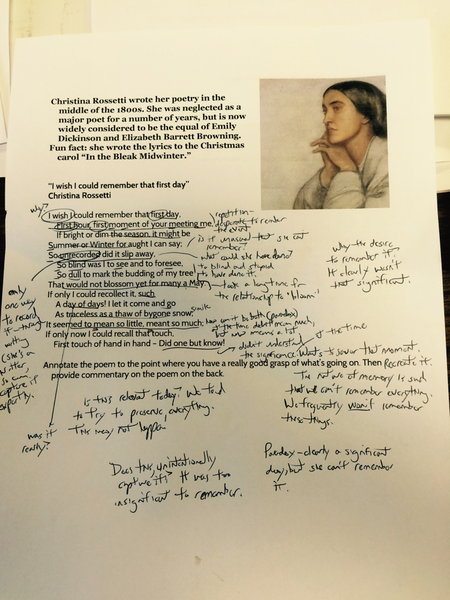 Christina Rossetti wrote her poetry in the
middle of the 1800s. She was neglected as a
major poet for a number of years, but is now
widely considered to be the equal of Emily
Dickinson and Elizabeth Barrett Browning.
Fun fact: she wrote the lyrics to the Christmas
carol "In the Bleak Midwinter."
"I wish I could remember that first day"
Christina Rossetti
why?
I wish I could remember that first day,
First hour, first moment of your meeting me,
If bright or dim the season, it might be
Summer or Winter for aught I can say;
So unrecorded did it slip away,
So blind was I to see and to foresee,
So dull to mark the budding of my tree
That would not blossom yet for many a May.
If only I could recollect it, such
A day of days! I let it come and go
As traceless as a thaw of bygone snow;
It seemed to mean so little, meant so much;
If only now I could recall that touch,
First touch of hand in hand – Did one but know!
Annotate the poem to the point where you have a really good grasp of what's going on. Then
provide commentary on the poem on the back.
repetition -
desperate to
the event
is it unusual that she can't
remember?
what could she have done?
to blind and stupid
to have done it.
took a long time for
the relationship to "bloom"
simile
how can it be both (paradox)
at the time didn't mean much,
but now means a lot
didn't understand
the significance
of the time
What's to savor that moment.
Recreate it.
why the desire
to remember it?
It clearly wasn't
that significant.
only
one way
to record
it - through
writing
(she's a
writer
so can
capture it
expertly.
was it
really?
Is this relevant today? We tend
to try to preserve everything.
This may not happen
The nature of memory is such
that we can't remember everything.
We frequently won't remember
these things.
Does this unintentionally
capture it? It was too
insignificant to remember.
Paradox - clearly a significant
day, but she can't remember
it.